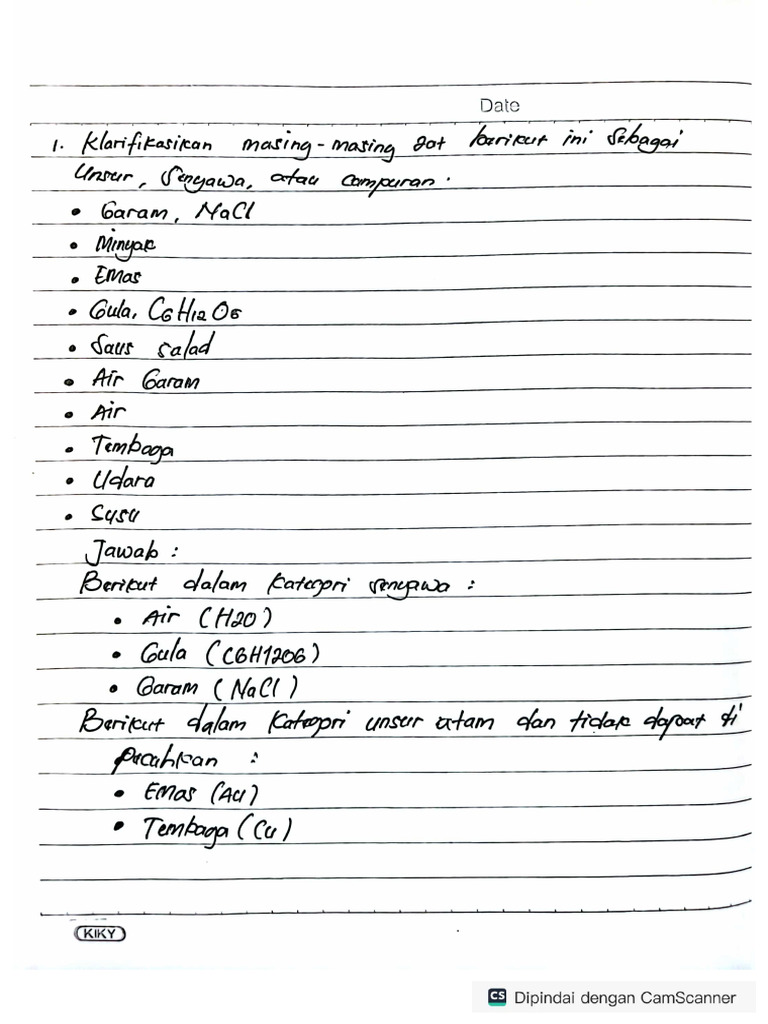 Date
1. Klarifikasikan masing-masing zat berikut ini sebagai
Unsur, Senyawa, atau Campuran.
• Garam, NaCl
• Minyak
• Emas
• Gula, C6H12O6
• Saus salad
• Air Garam
• Air
• Tembaga
• Udara
• Susu
Jawab :
Berikut dalam kategori senyawa :
• Air (H2O)
• Gula (C6H12O6)
• Garam (NaCl)
Berikut dalam kategori unsur atam dan tidak dapat di
pecahkan :
• Emas (Au)
• Tembaga (Cu)
KIKY
CS Dipindai dengan CamScanner